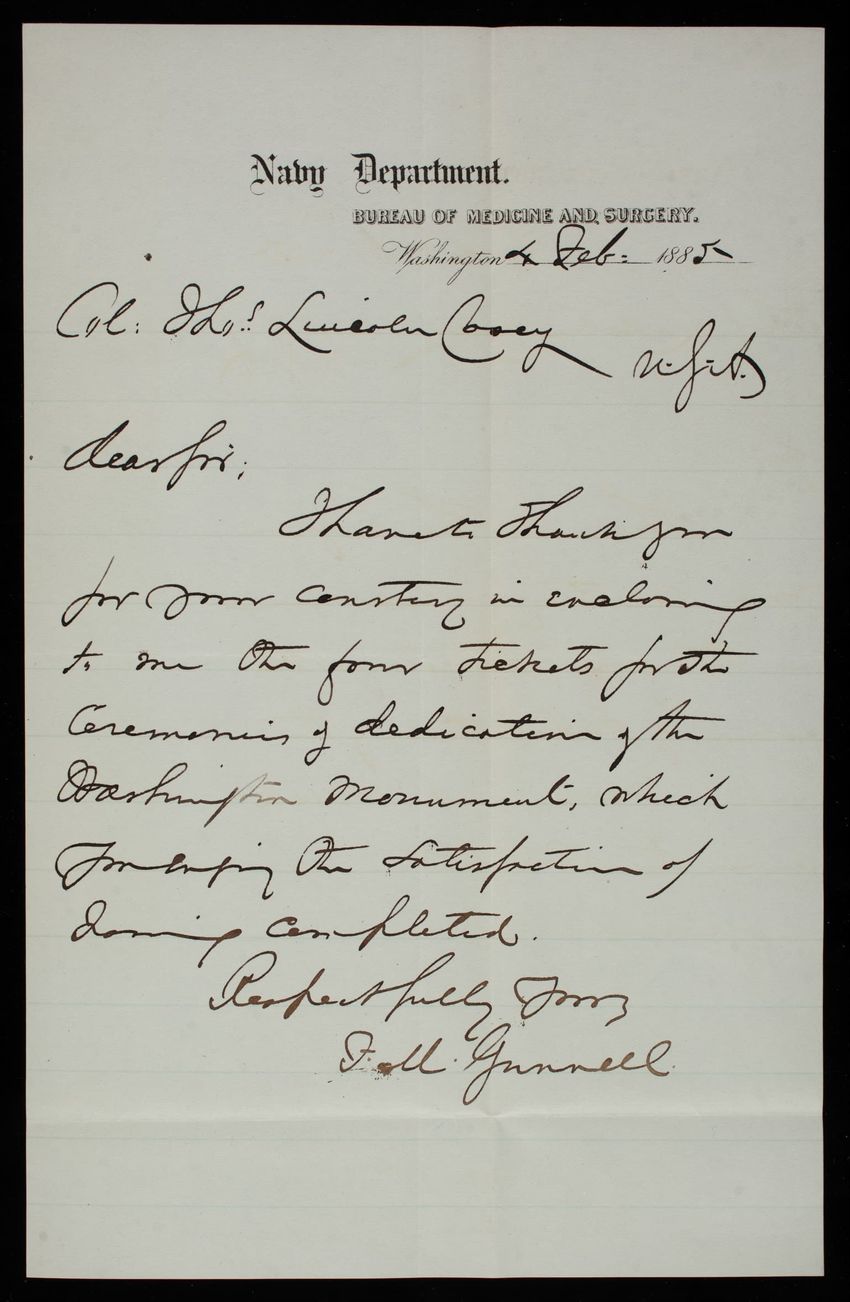 Navy Department.
BUREAU OF MEDICINE AND SURGERY.
Washington 4 Feb: 1885
Col: Thos. Lincoln Casey
U.S.A.
Dear Sir;
I have to thank you
for your courtesy in enclosing
to me the four tickets for the
Ceremonies of dedication of the
Washington Monument, which
you enjoy the satisfaction of
having completed.
Respectfully yours
F. M. Gunnell